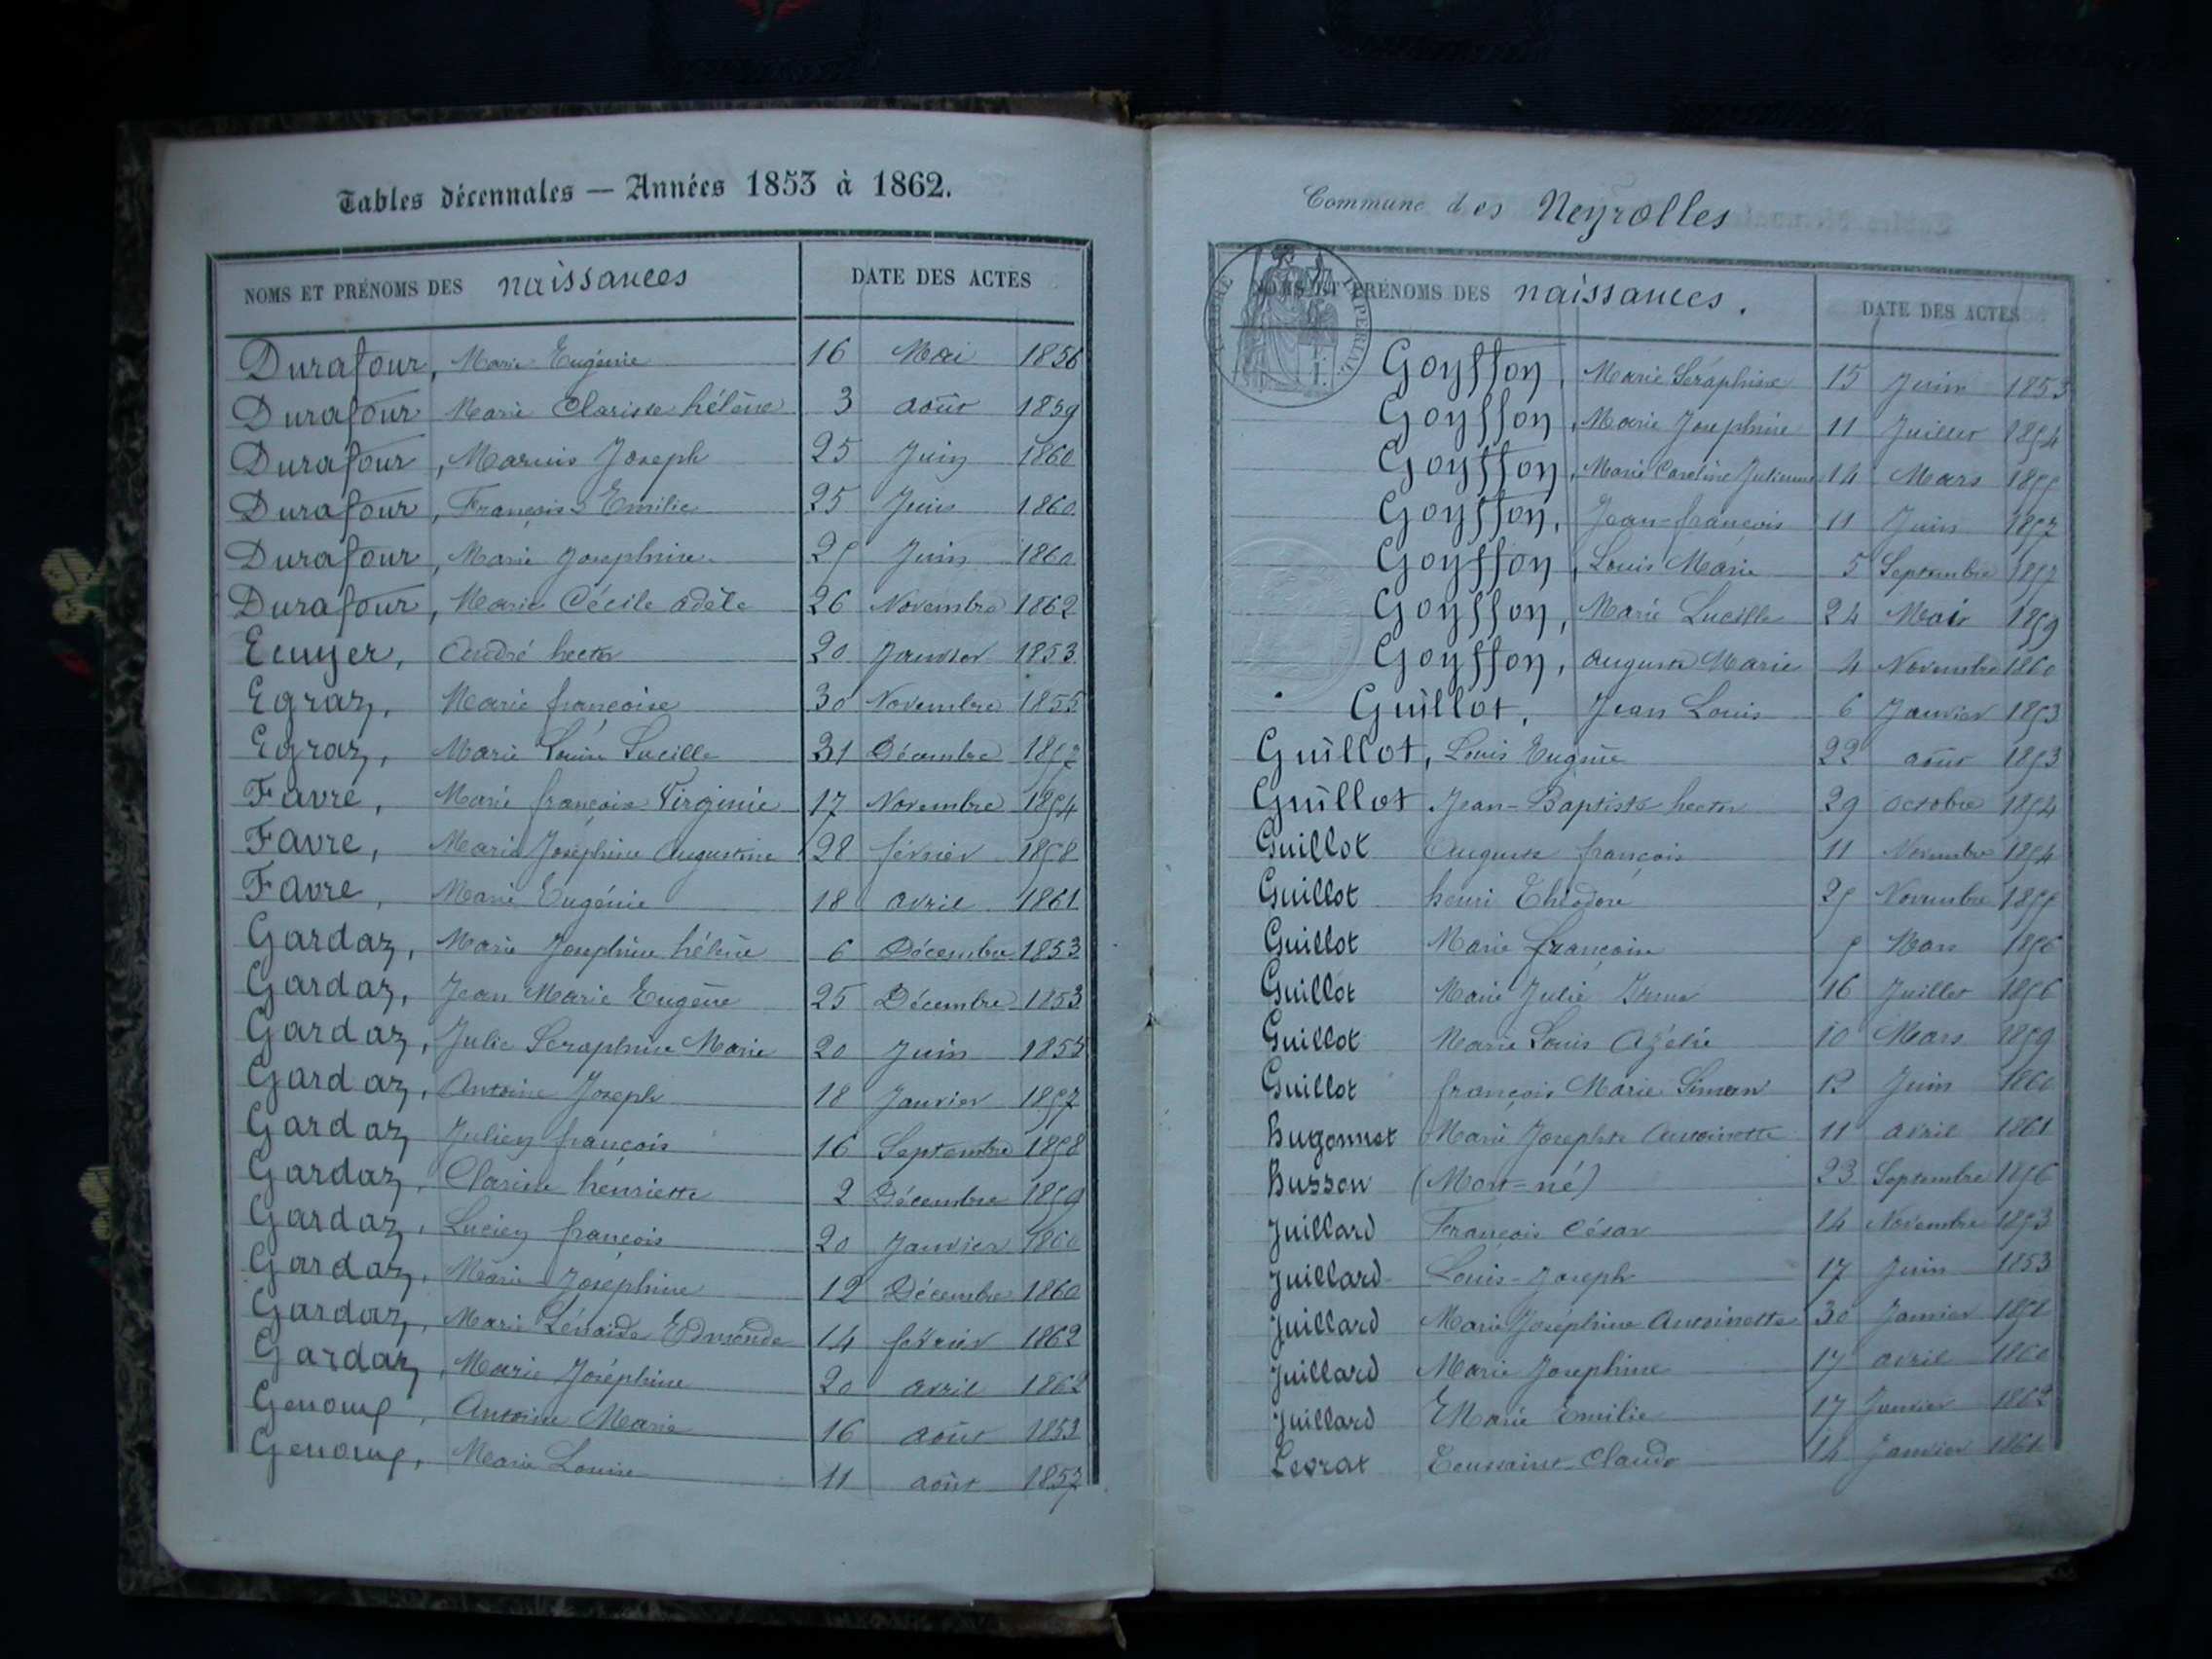 Tables décennales — Années 1853 à 1862.
NOMS ET PRÉNOMS DES naissances DATE DES ACTES
Durafour, Marie Eugénie 16 Mai 1856
Durafour Marie Clarisse hélène 3 août 1859
Durafour, Marius Joseph 25 Juin 1860
Durafour, François Emilie 25 Juin 1860
Durafour, Marie Joséphine 25 Juin 1860
Durafour, Marie Cécile adèle 26 Novembre 1862
Ecuyer, André hector 20 Janvier 1853
Egraz, Marie françoise 30 Novembre 1855
Egraz, Marie Louise Lucille 31 Décembre 1857
Favre, Marie françoise Virginie 17 Novembre 1854
Favre, Marie Joséphine Augustine 28 février 1858
Favre, Marie Eugénie 18 avril 1861
Gardaz, Marie Joséphine hélène 6 Décembre 1853
Gardaz, Jean Marie Eugène 25 Décembre 1853
Gardaz, Julie Séraphine Marie 20 Juin 1855
Gardaz, Antoine Joseph 18 Janvier 1857
Gardaz Julien françois 16 Septembre 1858
Gardaz, Clarisse henriette 2 Décembre 1859
Gardaz, Lucien françois 20 Janvier 1860
Gardaz, Marie Joséphine 12 Décembre 1860
Gardaz, Marie Zénaïde Edmonde 14 février 1862
Gardaz, Marie Joséphine 20 avril 1862
Genoux, Antoine Marie 16 août 1853
Genoux, Marie Louise 11 août 1857
Commune des Neyrolles
TIMBRE IMPERIAL
NOMS ET PRÉNOMS DES naissances. DATE DES ACTES
Goyffon, Marie Séraphine 15 Juin 1853
Goyffon, Marie Joséphine 11 Juillet 1854
Goyffon, Marie Caroline Julienne 14 Mars 1855
Goyffon, Jean-françois 11 Juin 1857
Goyffon, Louis Marie 5 Septembre 1857
Goyffon, Marie Lucille 24 1859
Goyffon, auguste Marie 4 Novembre 1860
Guillot, Jean Louis 6 Janvier 1853
Guillot, Louis Eugène 22 août 1853
Guillot Jean-Baptiste hector 29 octobre 1854
Guillot Auguste françois 11 Novembre 1854
Guillot henri Théodore 25 Novembre 1855
Guillot Marie françoise 5 Mars 1856
Guillot Marie Julie Irma 16 Juillet 1856
Guillot Marie Louis Azélie 10 Mars 1859
Guillot françois Marie Siméon 12 Juin 1860
hugonnet Marie Josephte Antoinette 11 avril 1861
husson (Mort-né) 23 Septembre 1856
Juillard François César 14 Novembre 1853
Juillard Louis-Joseph 17 Juin 1853
Juillard Marie Joséphine Antoinette 30 Janvier
Juillard Marie Joséphine 17 avril 1860
Juillard Marie Emilie 17 Janvier 1862
Levrat Toussaint Claude 14 Janvier 1861